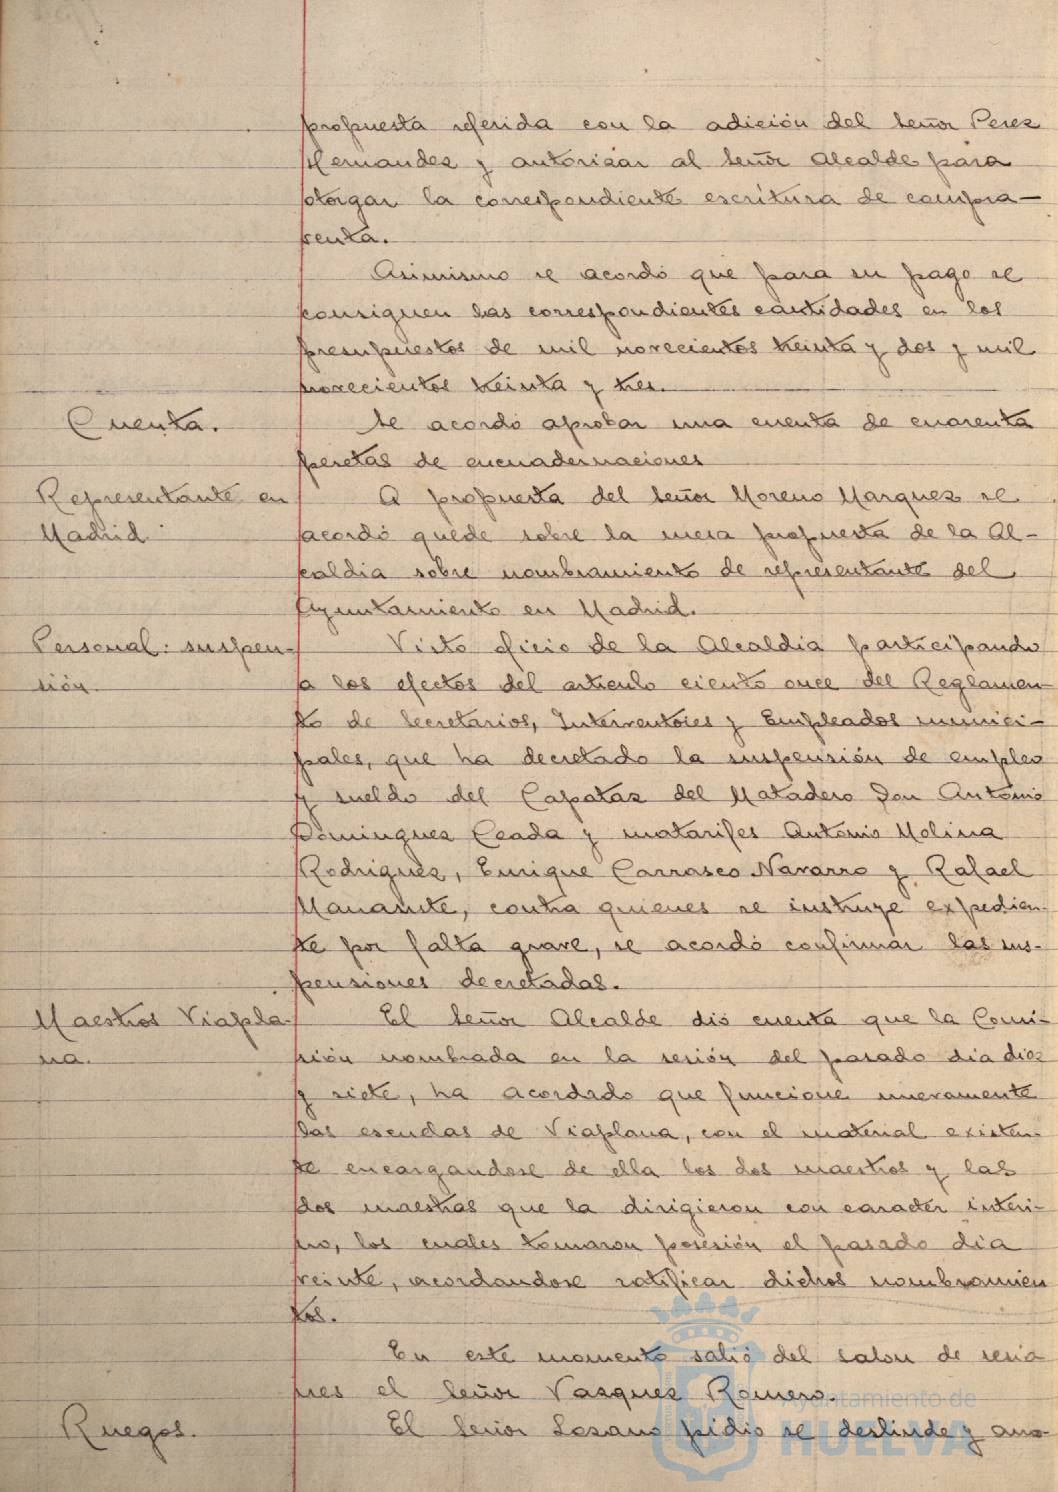 propuesta referida con la adición del Señor Perez
Hernandez y autorizar al Señor Alcalde para
otorgar la correspondiente escritura de compra-
venta.
Asimismo se acordó que para su pago se
consignen las correspondientes cantidades en los
presupuestos de mil novecientos treinta y dos y mil
novecientos treinta y tres.
Cuenta.
Se acordó aprobar una cuenta de cuarenta
pesetas de encuadernaciones
Representante en
Madrid.
A propuesta del Señor Moreno Marquez se
acordó quede sobre la mesa propuesta de la Al-
caldia sobre nombramiento de representante del
Ayuntamiento en Madrid.
Personal: suspen-
sión.
Visto oficio de la Alcaldia participando
a los efectos del articulo ciento once del Reglamen-
to de Secretarios, Interventores y Empleados munici-
pales, que ha decretado la suspensión de empleo
y sueldo del Capataz del Matadero Don Antonio
Dominguez Ceada y matarifes Antonio Molina
Rodriguez, Enrique Carrasco Navarro y Rafael
Manamte, contra quienes se instruye expedien-
te por falta grave, se acordó confirmar las sus-
pensiones decretadas.
Maestros Viapla-
na.
El Señor Alcalde dió cuenta que la Comi-
sión nombrada en la sesión del pasado dia diez
y siete, ha acordado que funcione nuevamente
las escuelas de Viaplana, con el material existen-
te encargandose de ella los dos maestros y las
dos maestras que la dirigieron con caracter interi-
no, los cuales tomaron posesión el pasado dia
veinte, acordandose ratificar dichos nombramien
tos.
En este momento salió del salon de sesio
nes el Señor Vazquez Romero.
Ruegos.
El Señor Lozano pidio se deslinde y amo-
Ayuntamiento de
HUELVA